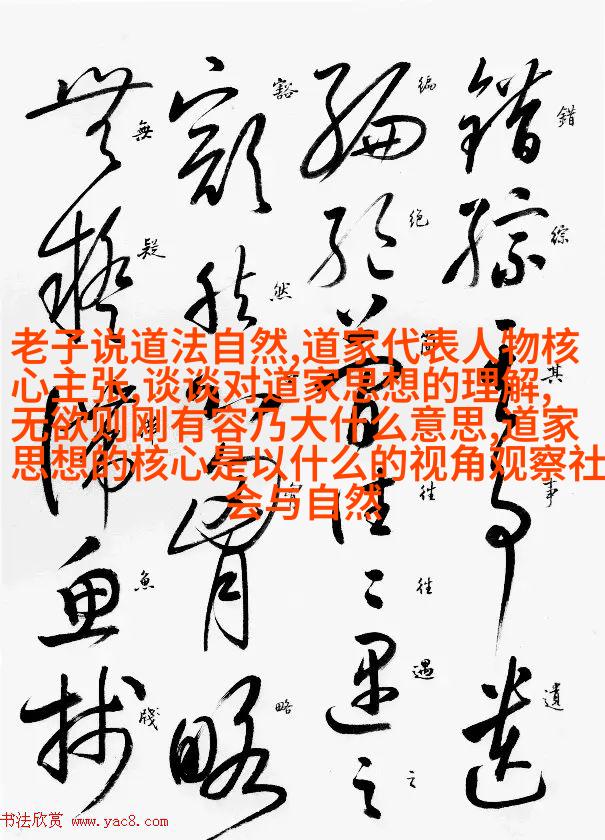 老子说道法自然,道家代表人物核
心主张,谈谈对道家思想的理解,
无欲则刚有容乃大什么意思,道家
思想的核心是以什么的视角观察社
会与自然
錯綜其事遺
編絕簡往往遇之
豁然心胸略
無疑滯魚牋
书法欣赏 www.yac8.com